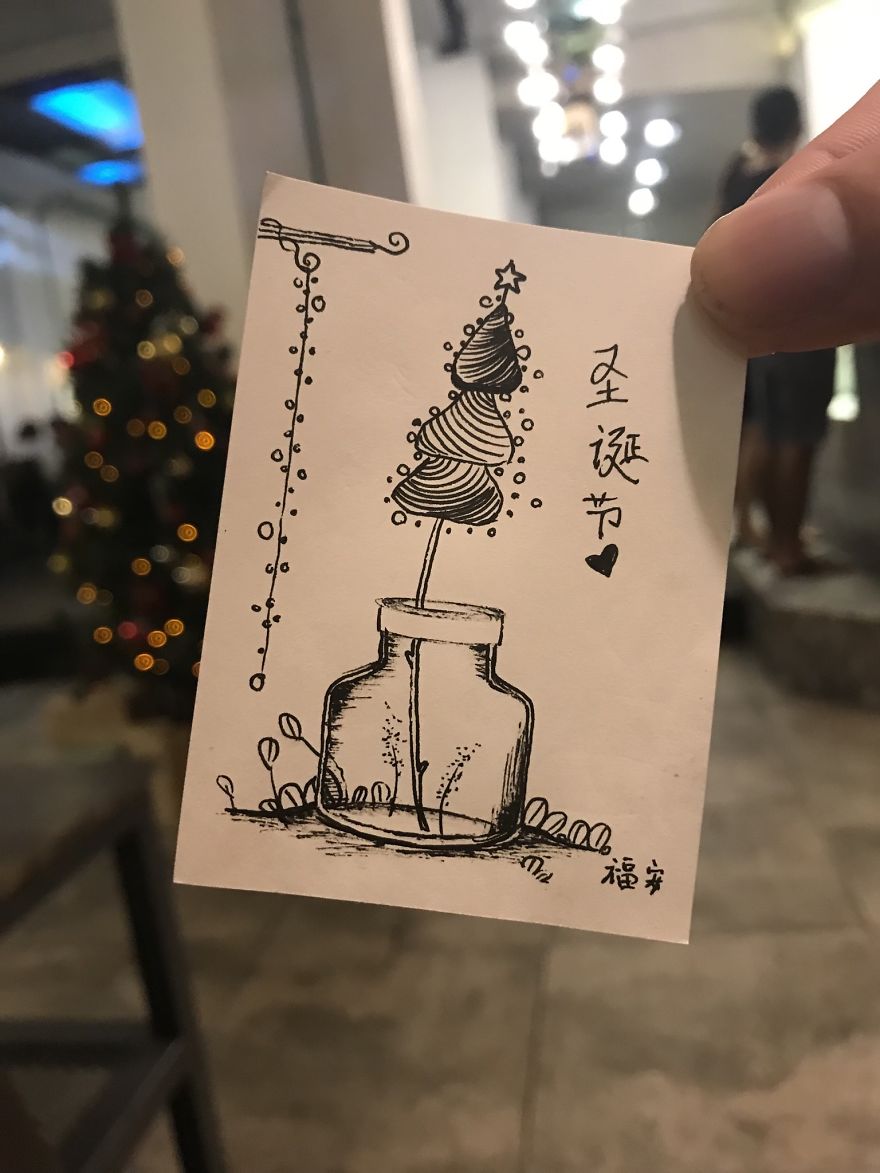 圣诞节
福安